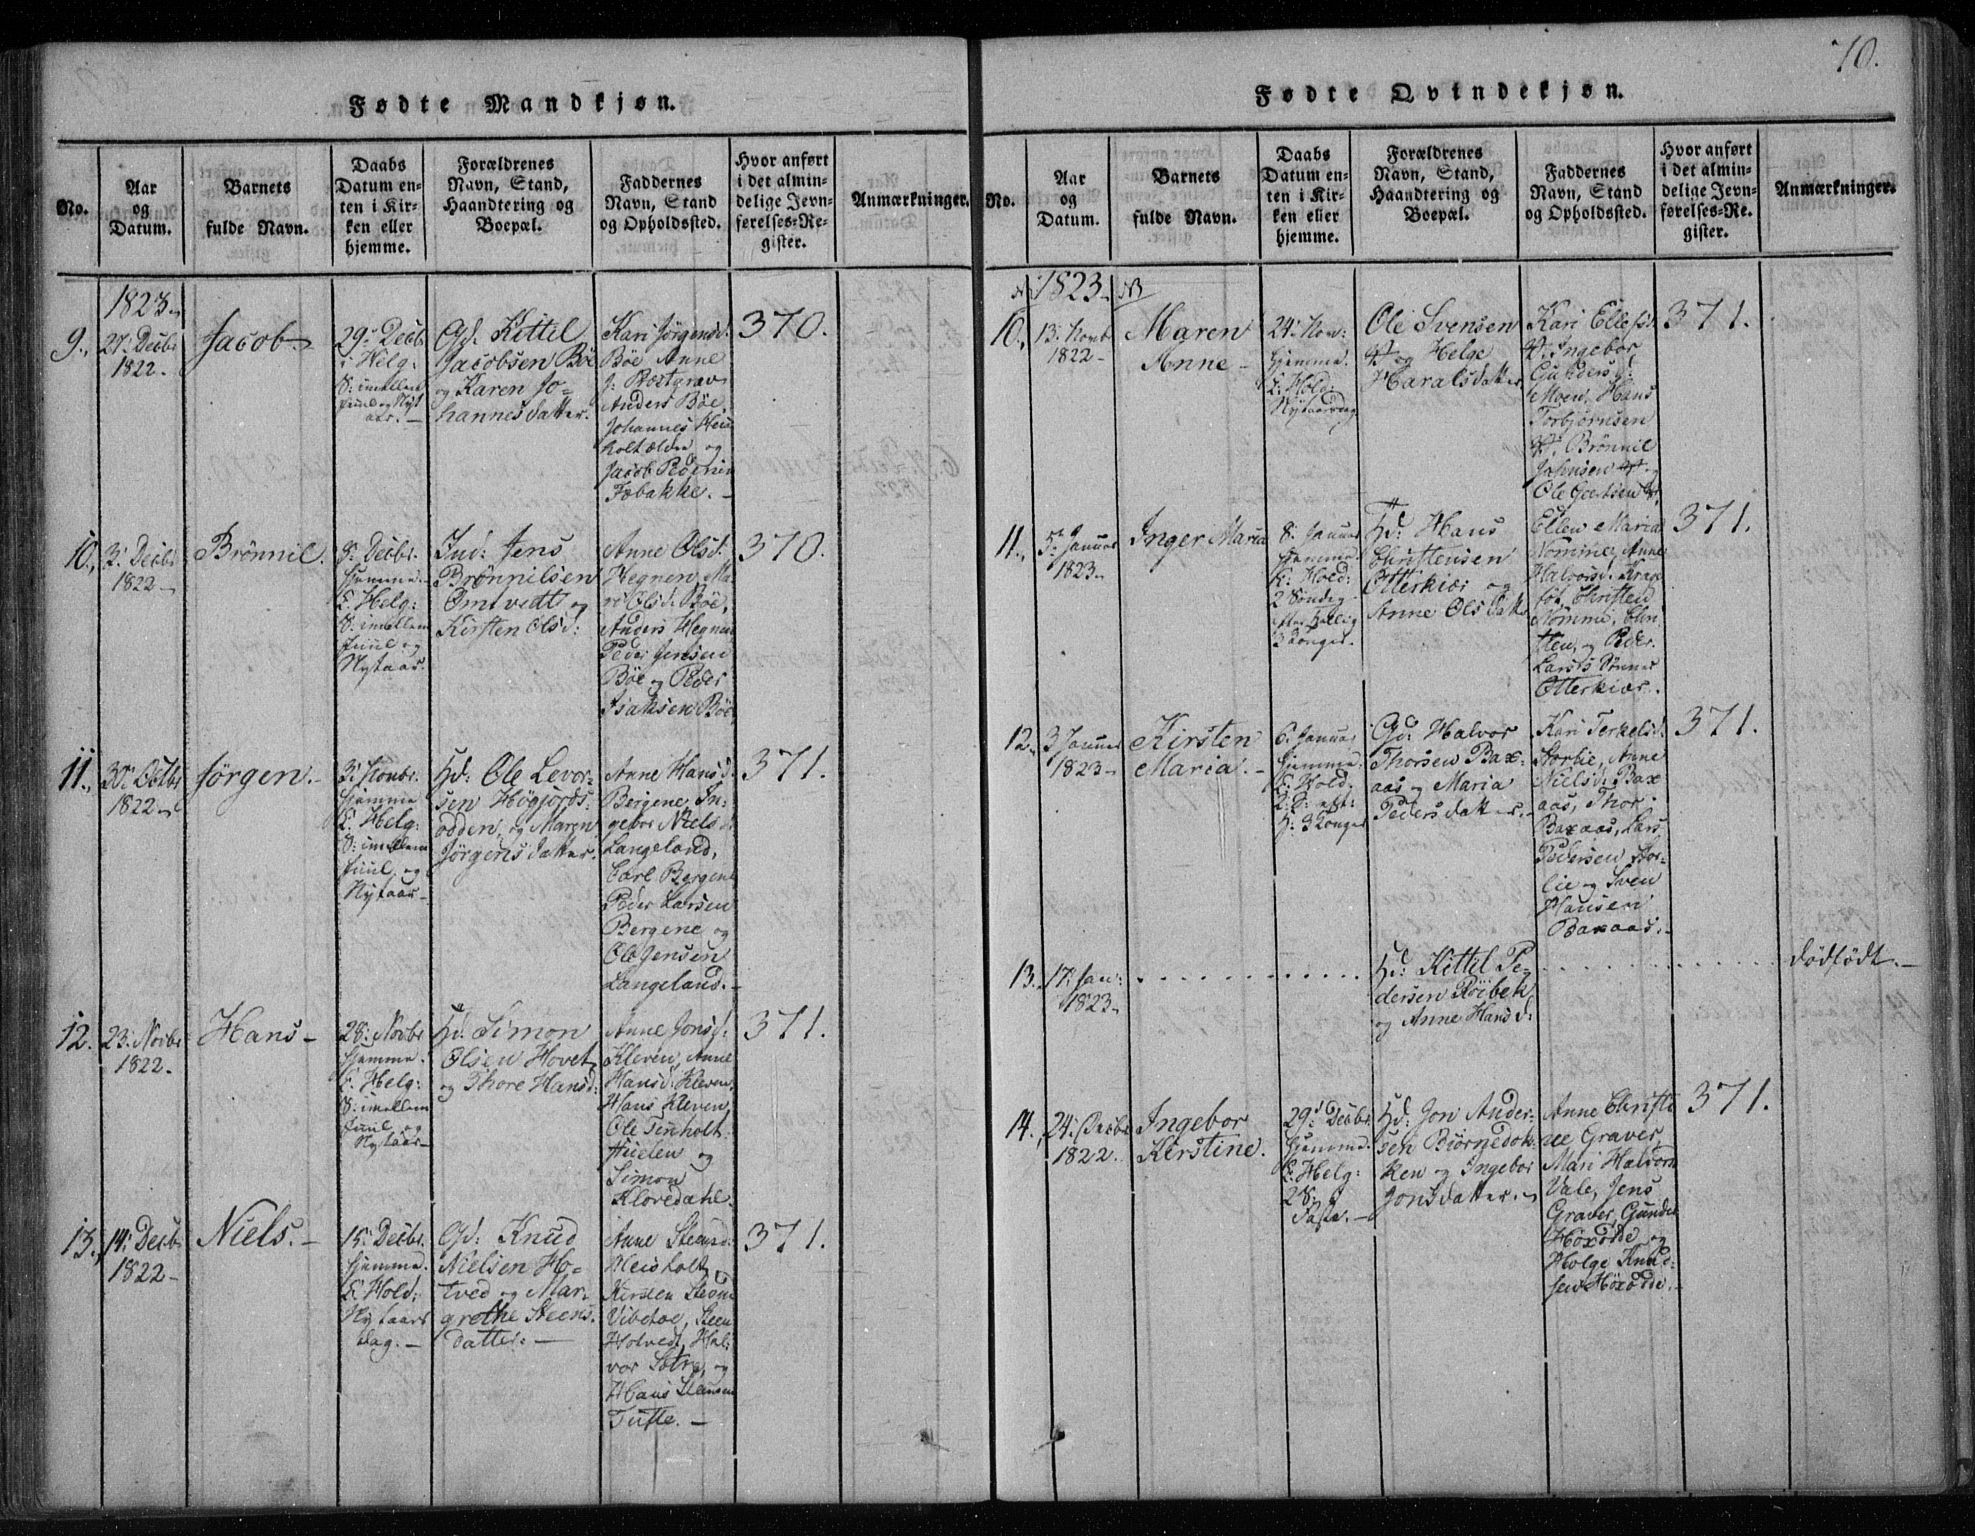 70.
Fødte Mandkjøn.
No.
Aar
og
Datum.
Barnets
fulde Navn.
Daabs
Datum en-
ten i Kir-
ken eller
hjemme.
Forældrenes
Navn, Stand,
Haandtering og
Boepæl.
Faddernes
Navn, Stand
og Opholdssted.
Hvor anført
i det almin-
delige Jevn-
førelses-Re-
gister.
Anmærkninger.
1823
9.,
27: Decbr
1822.
Jacob
29: Decbr
i Helg:
S: imellem
Juul og Nyt
aar. -
Gd: Kittel
Jacobsen Böe
og Karen Jo-
hannesdatter.
Kari Jørgensd:
Böe, Anne
J: Bæstgrav
Anders Böe,
Johannes
og
Jacob
370.
10.,
3: Decbr
1822
Brönnil.
8: Decbr.
hjemme.
C: Helg:
S: imellem
Juul og
Nytaar.
Ind: Jens
Brönnilsen
Omtvedt og
Kirsten Olsd:
Anne Olsd:
Hegnen, Ma-
ri Olsd: Böe,
Anders Hegnen
Peder Jensen
Böe og Peder
Isaksen Böe
370.
11.,
30: Octbr
1822
Jörgen. -
3: Novbr.
hjemme
C: Helg:
S: imellem
Juul, og
Nytaar -
Hd: Ole Levor-
sen Högjords-
odden, og Maren
Jörgensdatter.
Anne Hansd:
Bergene, In-
gebor Nielsd:
Langeland,
Carl Bergene
Peder Larsen
Bergene og
Ole Jensen
Langeland. -
371.
12.
23: Novbr
1822.
Hans -
28: Novbr
hjemme.
C: Helg:
S: imellem
Juul, og
Nytaar -
Hd: Simon
Olsen Hovet
og Thore Hansd:
Anne Jonsd:
Kleven, Anne
Hansd: Kleven,
Hans Kleven
Ole
og
Simon
Klovedahl.
371.
13.,
14: Decbr
1822 -
Niels. -
15: Decbr.
hjemme.
C: Hold:
Nytaars
dag. -
Gd: Knud
Nielsen Ho-
tved og Mar-
grethe Steens-
datter: -
Anne Steensd:
Meisholt,
Kirsten Steensd
Vibetoe, Steen
Holvedt, Hal-
vor Sotra, og
Hans Steensen
Tufte. -
371.
Fødte Qvindekjøn.
No.
Aar
og
Datum.
Barnets
fulde Navn.
Daabs
Datum en-
ten i Kir-
ken eller
hjemme.
Forældrenes
Navn, Stand,
Haandtering og
Boepæl.
Faddernes
Navn, Stand
og Opholdssted.
Hvor anført
i det almin-
delige Jevn-
førelses-Re-
gister.
Anmærkninger.
1823
10.,
13: Novb
1822 -
Maren
Anne -
24: Nov:
hjemme.
C: Hold:
Nytaarsdag
Ole Svensen
og Helge
Haralsdatter
Kari Ellefsd:
Ingebor
Gundersd:
Moen, Hans
Torbjörnsen
Brönnil
Johnsen og
Ole Geertsen
371.
11.,
5: Januar
1823
Inger Maria
8: Januar
hjemme.
C: Hold:
2 Söndag
efter Hellig
3 Konger.
Hd: Hans
Christensen
Otterkiær og
Anne Olsdatter
Ellen Maria
Nomme, Anne
Halvorsd:
Christen
Nomme,
og Peder
Larsen
Otterkiær.
371.
12.
3 Januar
1823
Kirsten
Maria. -
6: Januar
hjemme.
C: Hold:
2: S: eft:
H: 3 Konger
Gd: Halvor
Thorsen Bax-
aas og Maria
Pedersdatter. -
Kari Terkelsd:
Storlie, Anne
Nielsd: Bax
aas, Thor
Baxaas, Lars
Pedersen Stor-
lie og Sven
Hansen
Baxaas. -
371.
13.
17: Jan:
1823
Hd: Kittel Pe-
dersen Röibek
og Anne Hansd:
dödfödt. -
14.,
24: Decbr
1822.
Ingebor
Kirstine.
29: Decbr.
hjemme.
C: Helg:
2 S:
Faste. -
Hd: Jon Ander-
sen Biörnedok-
ken og Ingebor
Jonsdatter. -
Anne Christi-
ne Graver,
Mari Halvorsd
Vale, Jens
Graver, Gunder
Höxodde og
Holge Knud-
sen Höxodde. -
371.